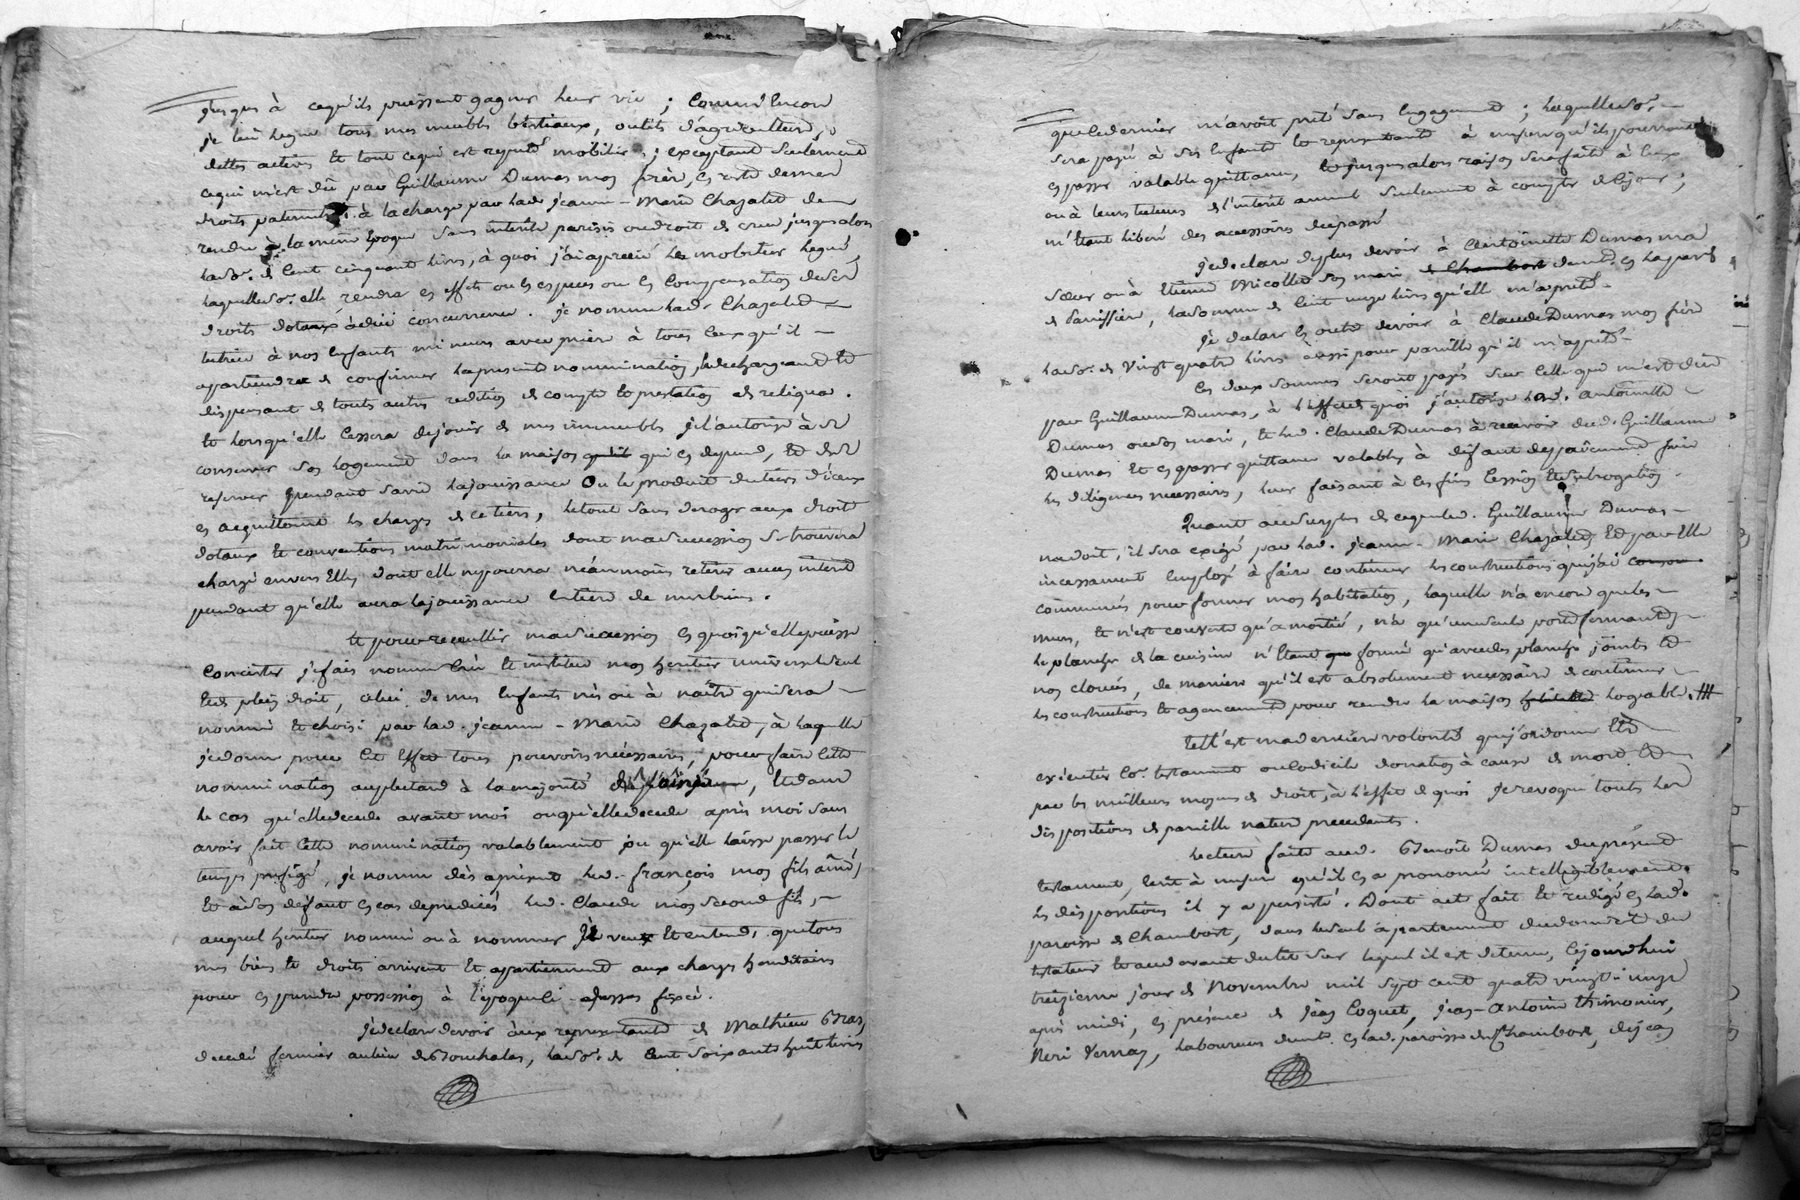 jusques à cequ'ils puissent gagner leur vie ; comme encore
je lui legue tous mes meubles bestiaux, outils d'agriculture,
dettes actives et tout cequi est reputé mobilier ; exceptant seulement
cequi m'est dû par Guillaume Dumas mon frère, en reste de mes
droits paternels ; à la charge par lad. jeanne-Marie Chazalet de
rendre à la même époque sans interêts parisis ou droit de crue jusques alors
laso.e de cent cinquante livres, à quoi j'ai aprecié le mobilier legué,
laquelle so.e elle rendra en effets ou en especes ou en compensation de ses
droits dotaux à due concurrence. je nomme lad. Chazalet
tutrice à nos enfants mineurs avec prière à tous ceux qu'il
appartiendra de confirmer la presente nomination, la dechargeant et
dispensant de toute autre reddition de compte et prestation de reliqua.
et lorsqu'elle cessera de jouir de mes immeubles je l'autorise à se
conserver son logement dans la maison qui en depend, et de se
reserver pendant sa vie la jouissance ou le produit du tiers d'iceux
en acquittant les charges de ce tiers, le tout sans deroger aux droits
dotaux et conventions matrimoniales dont ma succession se trouvera
chargé envers elle, dont elle ne pourra néanmoins retirer aucun interêt
pendant qu'elle aura la jouissance entiere de mes biens.
et pour recueillir ma succession en quoi qu'elle puisse
consister je fais nomme crée et institue mon heritier universel seul
et de plein droit, celui de mes enfants nés ou à naître qui sera
nommé et choisi par lad. jeanne-Marie Chazalet, à laquelle
je donne pour cet effet tous pouvoirs nécessaires, pour faire cette
nomination au plustard à la majorité, et dans
le cas qu'elle decede avant moi ou qu'elle decede après moi sans
avoir fait cette nomination valablement ou qu'elle laisse passer le
temps prefigé, je nomme dès aprésent led. françois mon fils aîné,
et à son défaut en cas de predecés led. Claude mon second fils,
auquel heritier nommé ou à nommer je veux et entend, que tous
mes biens et droits arrivent et appartiennent aux charges hereditaires
pour en prendre possession à l'epoque ci-dessus fixée.
je declare devoir aux representants de Mathieu Gras,
decedé fermier au lieu de Gouhalas, laso.e de cent soixante huit livres
que ce dernier m'avoit prêté sans engagement ; laquelle so.e
sera payé à ses enfants le representant à mesure qu'ils pourront
en passer valable quittance, et jusques alors raison sera faite à eux
ou à leurs tuteurs de l'interêt annuel seulement à compter de ce jour ;
m'étant liberé des accessoires du passé
je declare de plus devoir à Antoinette Dumas ma
sœur ou à Etienne Micollet son mari dem.t en la paroisse
de Panissière, la somme de cent onze livres qu'elle m'a prêté.
je declare en outre devoir à Claude Dumas mon frère
laso.e de vingt quatre livres aussi pour pareille qu'il m'a prêté.
ces deux sommes seront payés sur celle qui m'est due
par Guillaume Dumas, à l'effet de quoi j'autorise lad. Antoinette
Dumas ou son mari, et led. Claude Dumas à recevoir dud. Guillaume
Dumas et en passer quittance valable, à défaut de paiement faire
les diligences necessaires, leur faisant à ces fins cession et subrogation.
Quant au surplus de ce que led. Guillaume Dumas
me doit, il sera exigé par lad. jeanne-Marie Chazalet, et par elle
incessament employé à faire continuer les constructions que j'ai
commencés pour former mon habitation, laquelle n'a encore que les
murs, et n'est couverte qu'à moitié, n'a qu'une seule porte fermante,
le plancher de la cuisine n'étant formé qu'avec des planches joints et
non cloués, de maniere qu'il est absolument necessaire de continuer
les constructions et agencement pour rendre la maison logeable.
telle est ma derniere volonté que j'ordonne être
executée co.e testament ou codicile donation à cause de mort et
par les meilleurs moyens de droit, à l'effet de quoi je revoque toutes les
dispositions de pareille nature precedentes.
lecture faite aud. Benoît Dumas du présent
testament, écrit à mesure qu'il en a prononcé intelligiblement
les dispositions il y a persisté. Dont acte fait et redigé en lad.
paroisse de Chambost, dans le seul apartement du domicile du
testateur et au devant du lit sur lequel il est detenu, cejourdhui
treizieme jour de Novembre mil sept cent quatre vingt-onze
après midi, en présence de jean Coquet, jean-Antoine thimonier,
Neri Vernay, laboureurs dem.t en lad. paroisse de Chambost, de jean